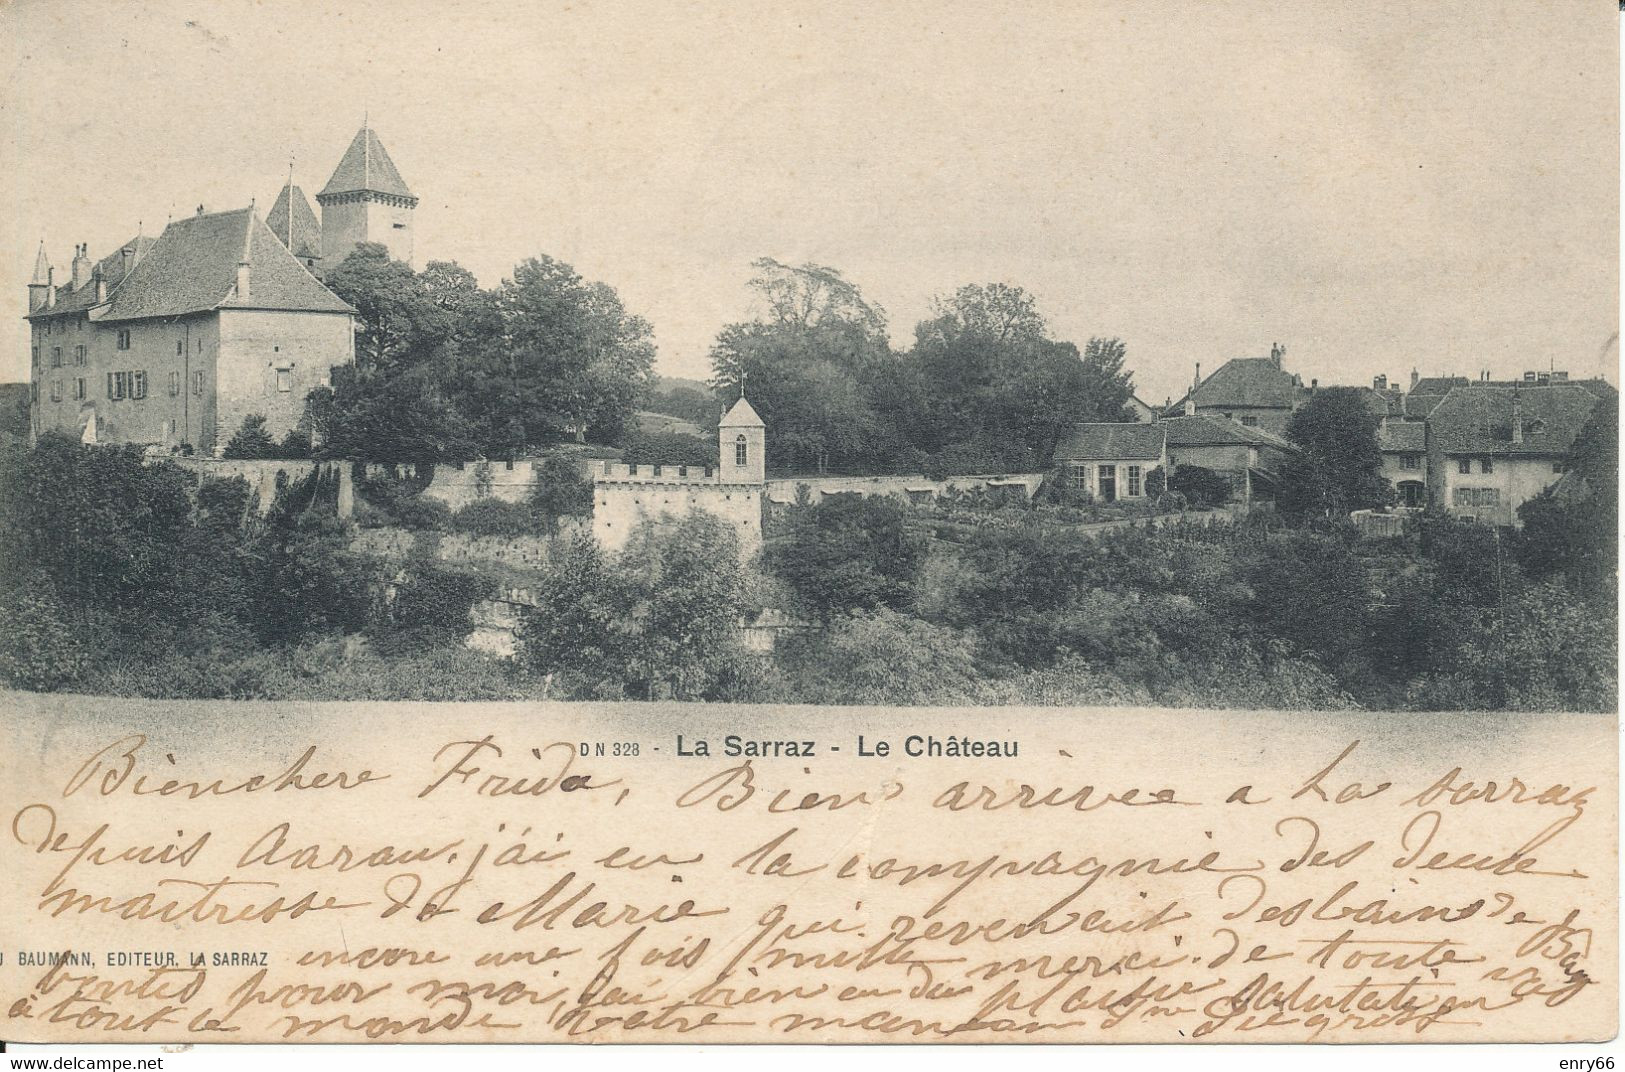 DN 328 - La Sarraz - Le Château
Bienchere Frida, Bien arrivee a La Sarraz
depuis Aarau. j'ai eu la compagnie des deux
maitresse de Marie qui revenait des bains de
encore une fois mille merci de toute
J BAUMANN, EDITEUR, LA SARRAZ
bontes pour moi, j'ai bien eu du plaisir
à tout le monde votre
enry66